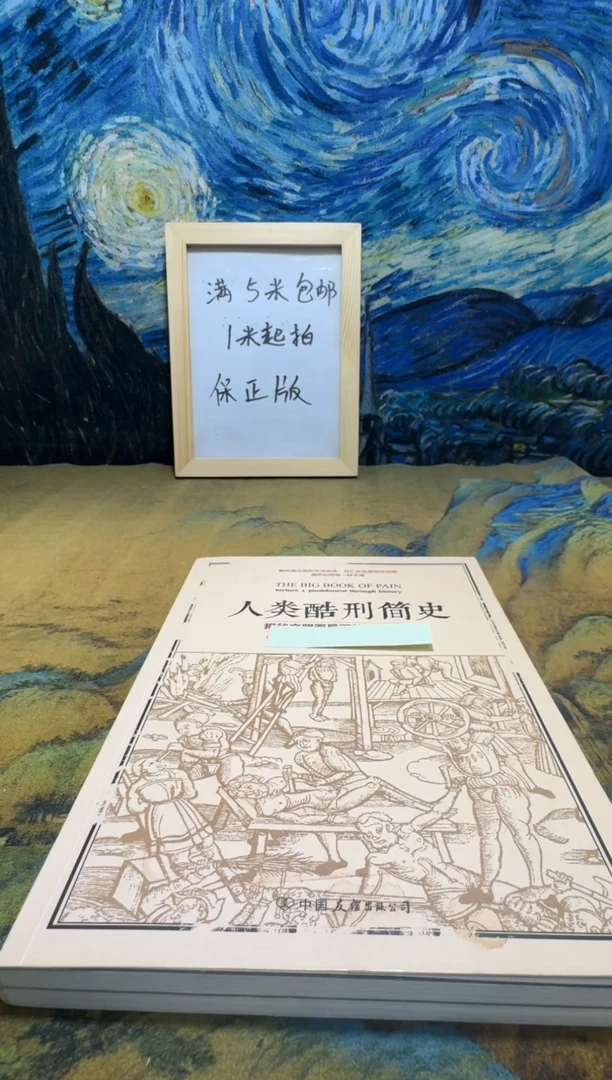 满5米包邮
1米起拍
保正版
THE BIG BOOK OF PAIN
torture & punishment through history
人类酷刑简史
中国友谊出版公司